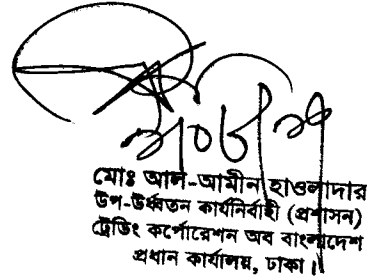 মোঃ আল-আমীন হাওলাদার
উপ-উর্ধ্বতন কার্যনির্বাহী (প্রশাসন)
ট্রেডিং কর্পোরেশন অব বাংলাদেশ
প্রধান কার্যালয়, ঢাকা।